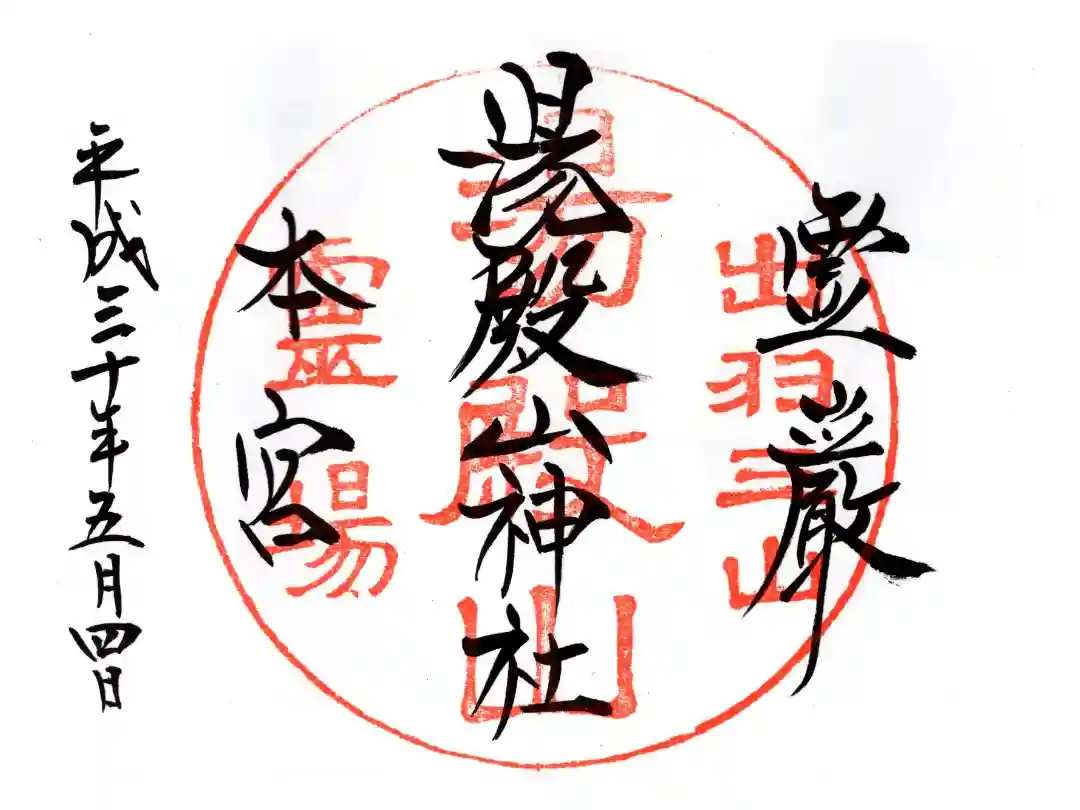 霊厳
湯殿山神社
本宮
平成三十年五月四日
出羽三山
湯殿山
霊場